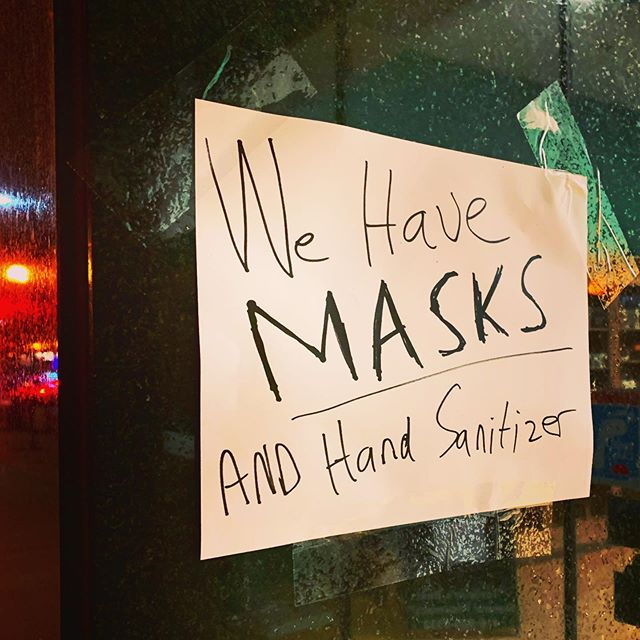 We Have
MASKS
AND Hand Sanitizer